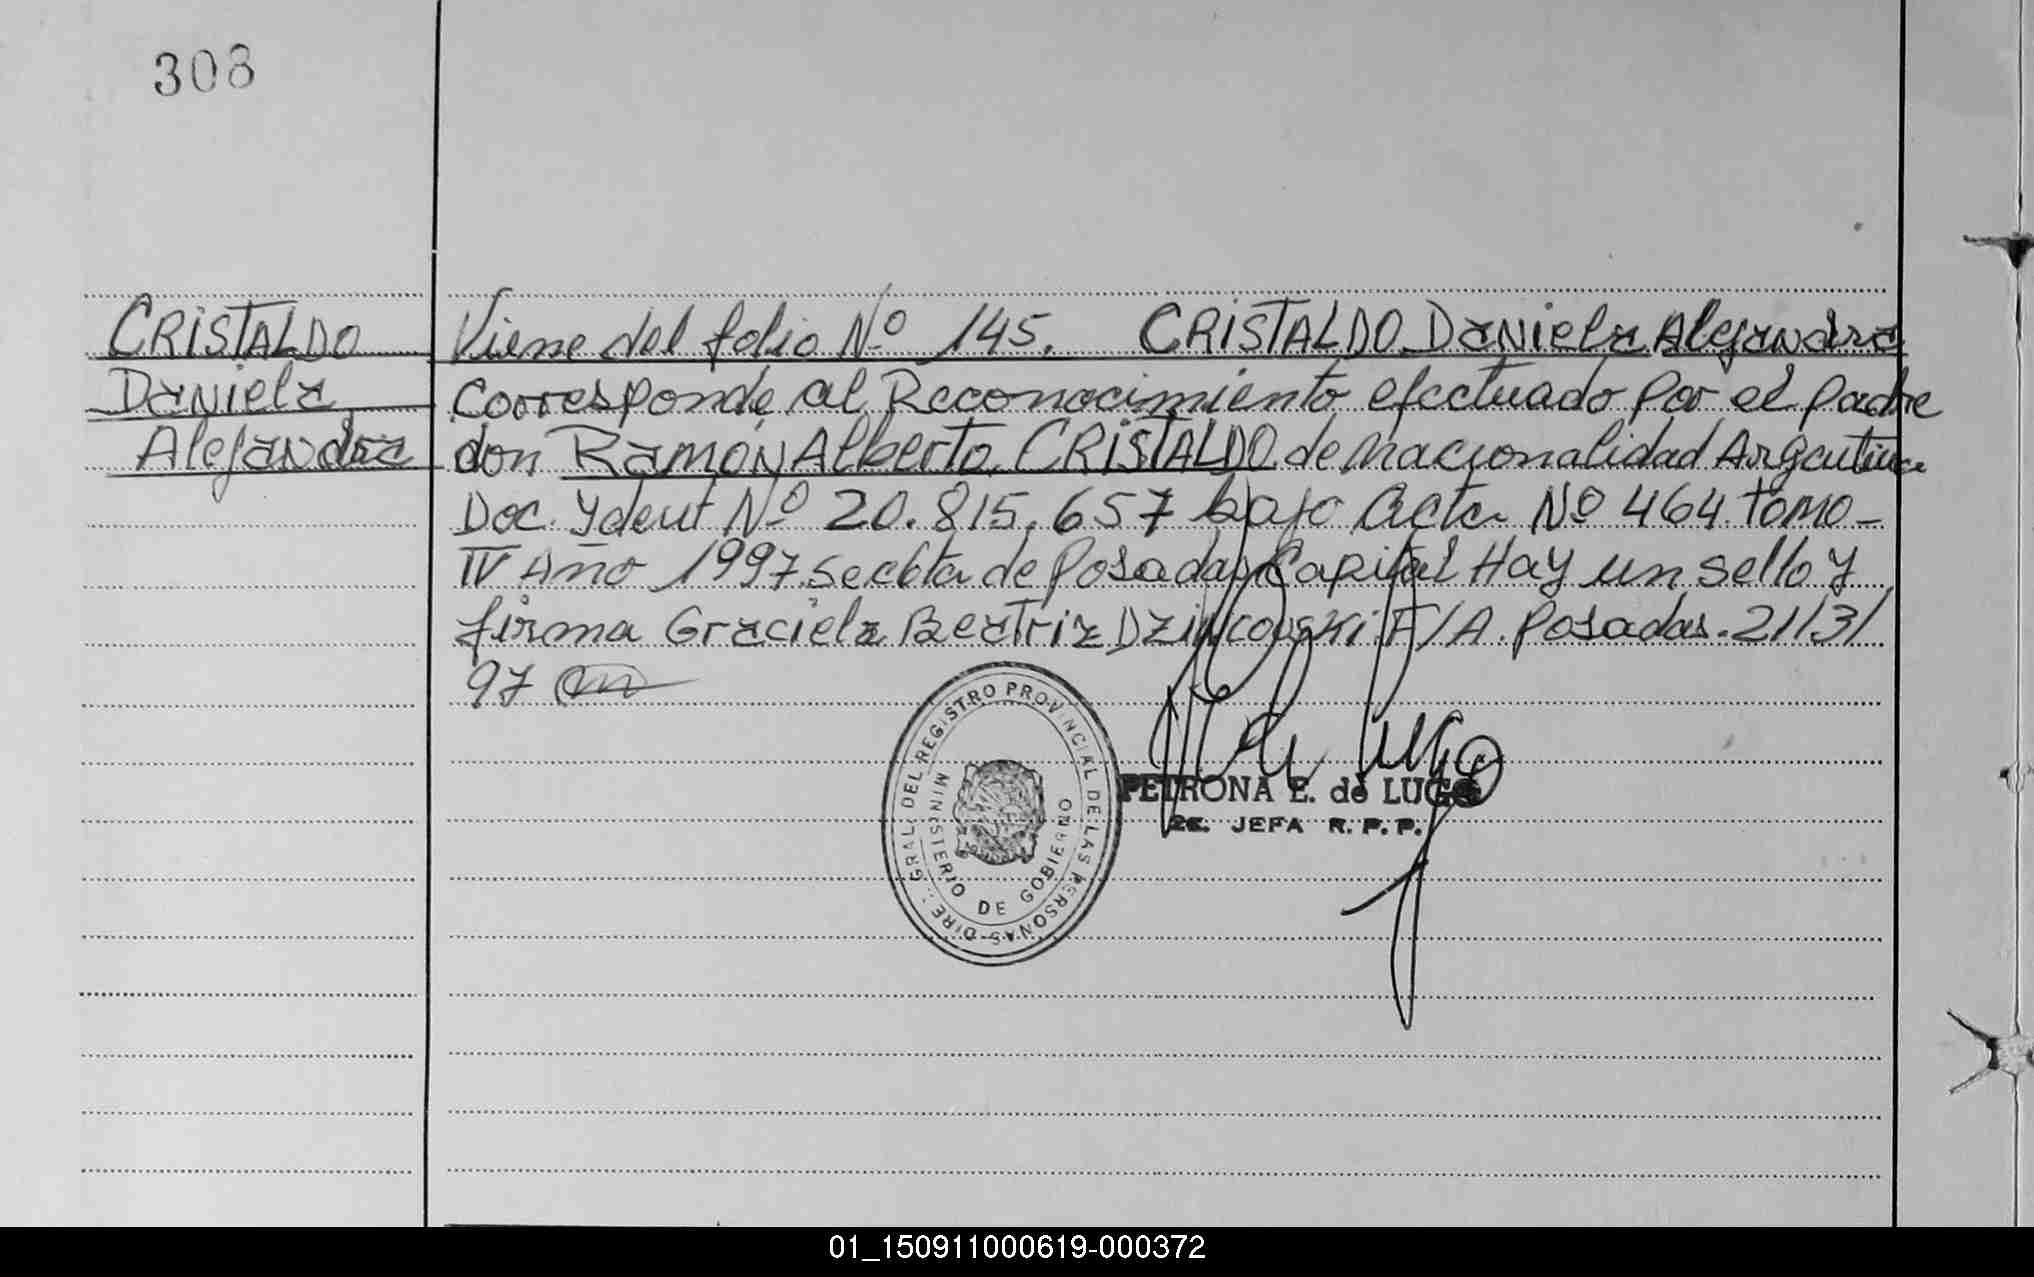 308
CRISTALDO
Daniela
Alejandra
Viene del folio Nº 145. CRISTALDO Daniela Alejandra
Corresponde al Reconocimiento efectuado por el padre
don Ramón Alberto CRISTALDO de nacionalidad Argentina
Doc. Ydent Nº 20.815.657 bajo Acta Nº 464 tomo-
IV Año 1997 de Posadas Capital Hay un sello y
firma Graciela Beatriz Dzincovski F/A. Posadas. 21/3/
97
DIRE. GRAL. DEL REGISTRO PROVINCIAL DE LAS PERSONAS
MINISTERIO DE GOBIERNO
PETRONA E. de LUGO
JEFA R. P. P.
01_150911000619-000372